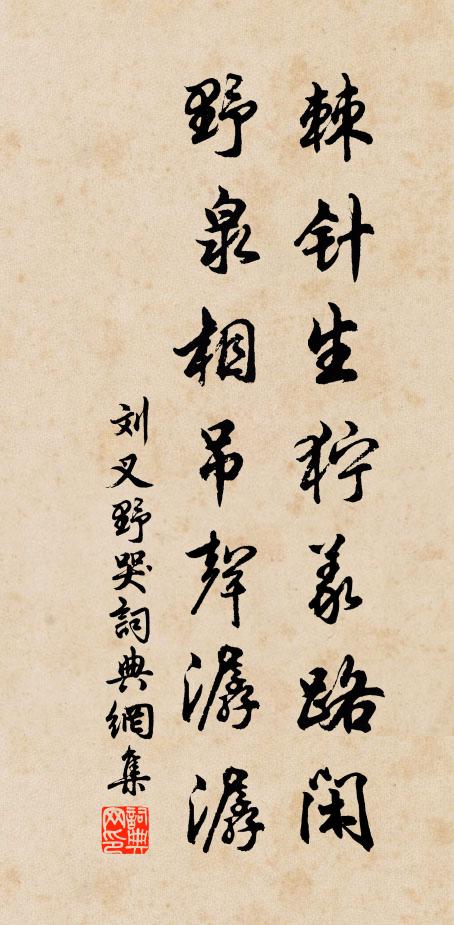 棘针生狞义路闲
野泉相吊聲潺潺
刘叉野哭詞典網集
詞典网印